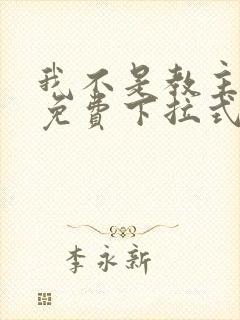 我不是教主
免費下拉式
李永新